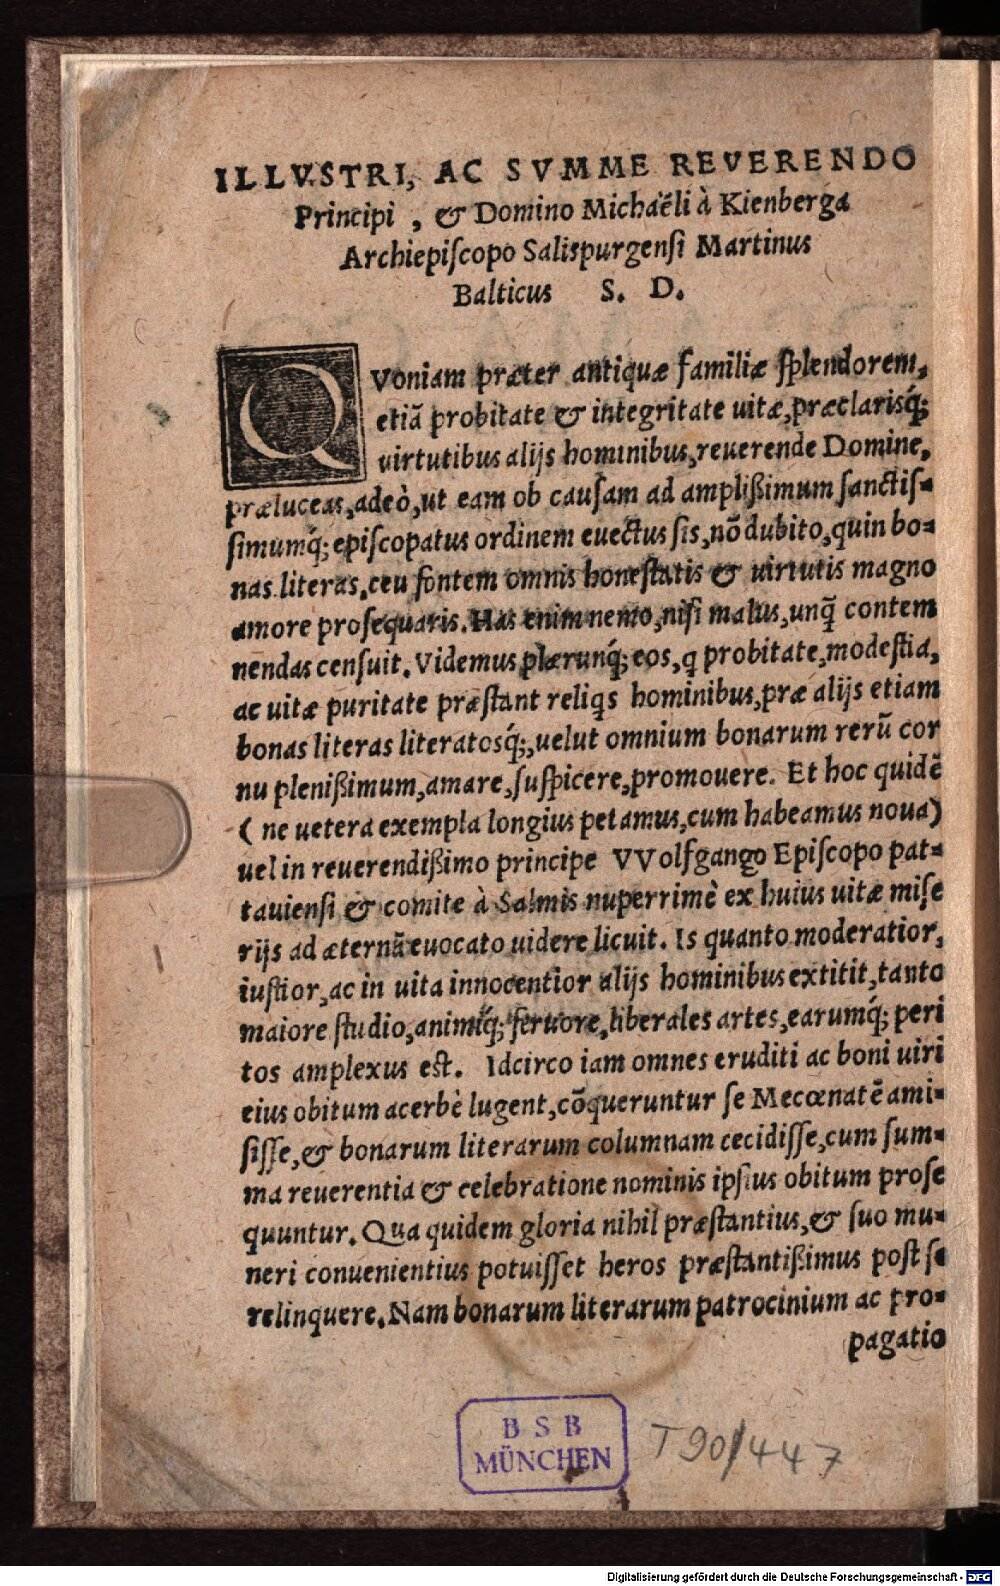 ILLVSTRI, AC SVMME REVERENDO
Principi, & Domino Michaëli à Kienberga
Archiepiſcopo Salispurgenſi Martinus
Balticus S. D.
QVoniam præter antiquæ familiæ ſplendorem,
etiā probitate & integritate uitæ, præclarisq́;
uirtutibus alijs hominibus, reuerende Domine,
præluceas, adeò, ut eam ob cauſam ad amplißimum ſanctiſ-
ſimumq́; epiſcopatus ordinem euectus ſis, nō dubito, quin bo-
nas literas, ceu fontem omnis honeſtatis & uirtutis magno
amore proſequaris. Has enim nemo, niſi malus, unq̃ contem
nendas cenſuit. Videmus plærunq́; eos, q probitate, modeſtia,
ac uitæ puritate præſtant reliqs hominibus, præ alijs etiam
bonas literas literatosq́;, uelut omnium bonarum rerū cor
nu plenißimum, amare, ſuſpicere, promouere. Et hoc quidē
( ne uetera exempla longius petamus, cum habeamus noua)
uel in reuerendißimo principe VVolfgango Epiſcopo pat-
tauienſi & comite à Salmis nuperrimè ex huius uitæ miſe
rijs ad æternā euocato uidere licuit. Is quanto moderatior,
iuſtior, ac in uita innocentior alijs hominibus extitit, tanto
maiore ſtudio, animiq́; feruore, liberales artes, earumq́; peri
tos amplexus eſt. Idcirco iam omnes eruditi ac boni uiri
eius obitum acerbè lugent, cōqueruntur ſe Mecœnatē ami-
ſiſſe, & bonarum literarum columnam cecidiſſe, cum ſum-
ma reuerentia & celebratione nominis ipſius obitum proſe
quuntur. Qua quidem gloria nihil præſtantius, & ſuo mu-
neri conuenientius potuiſſet heros præſtantißimus poſt ſe
relinquere. Nam bonarum literarum patrocinium ac pro-
pagatio
BSB
MÜNCHEN
T 90/447
Digitalisierung gefördert durch die Deutsche Forschungsgemeinschaft - DFG